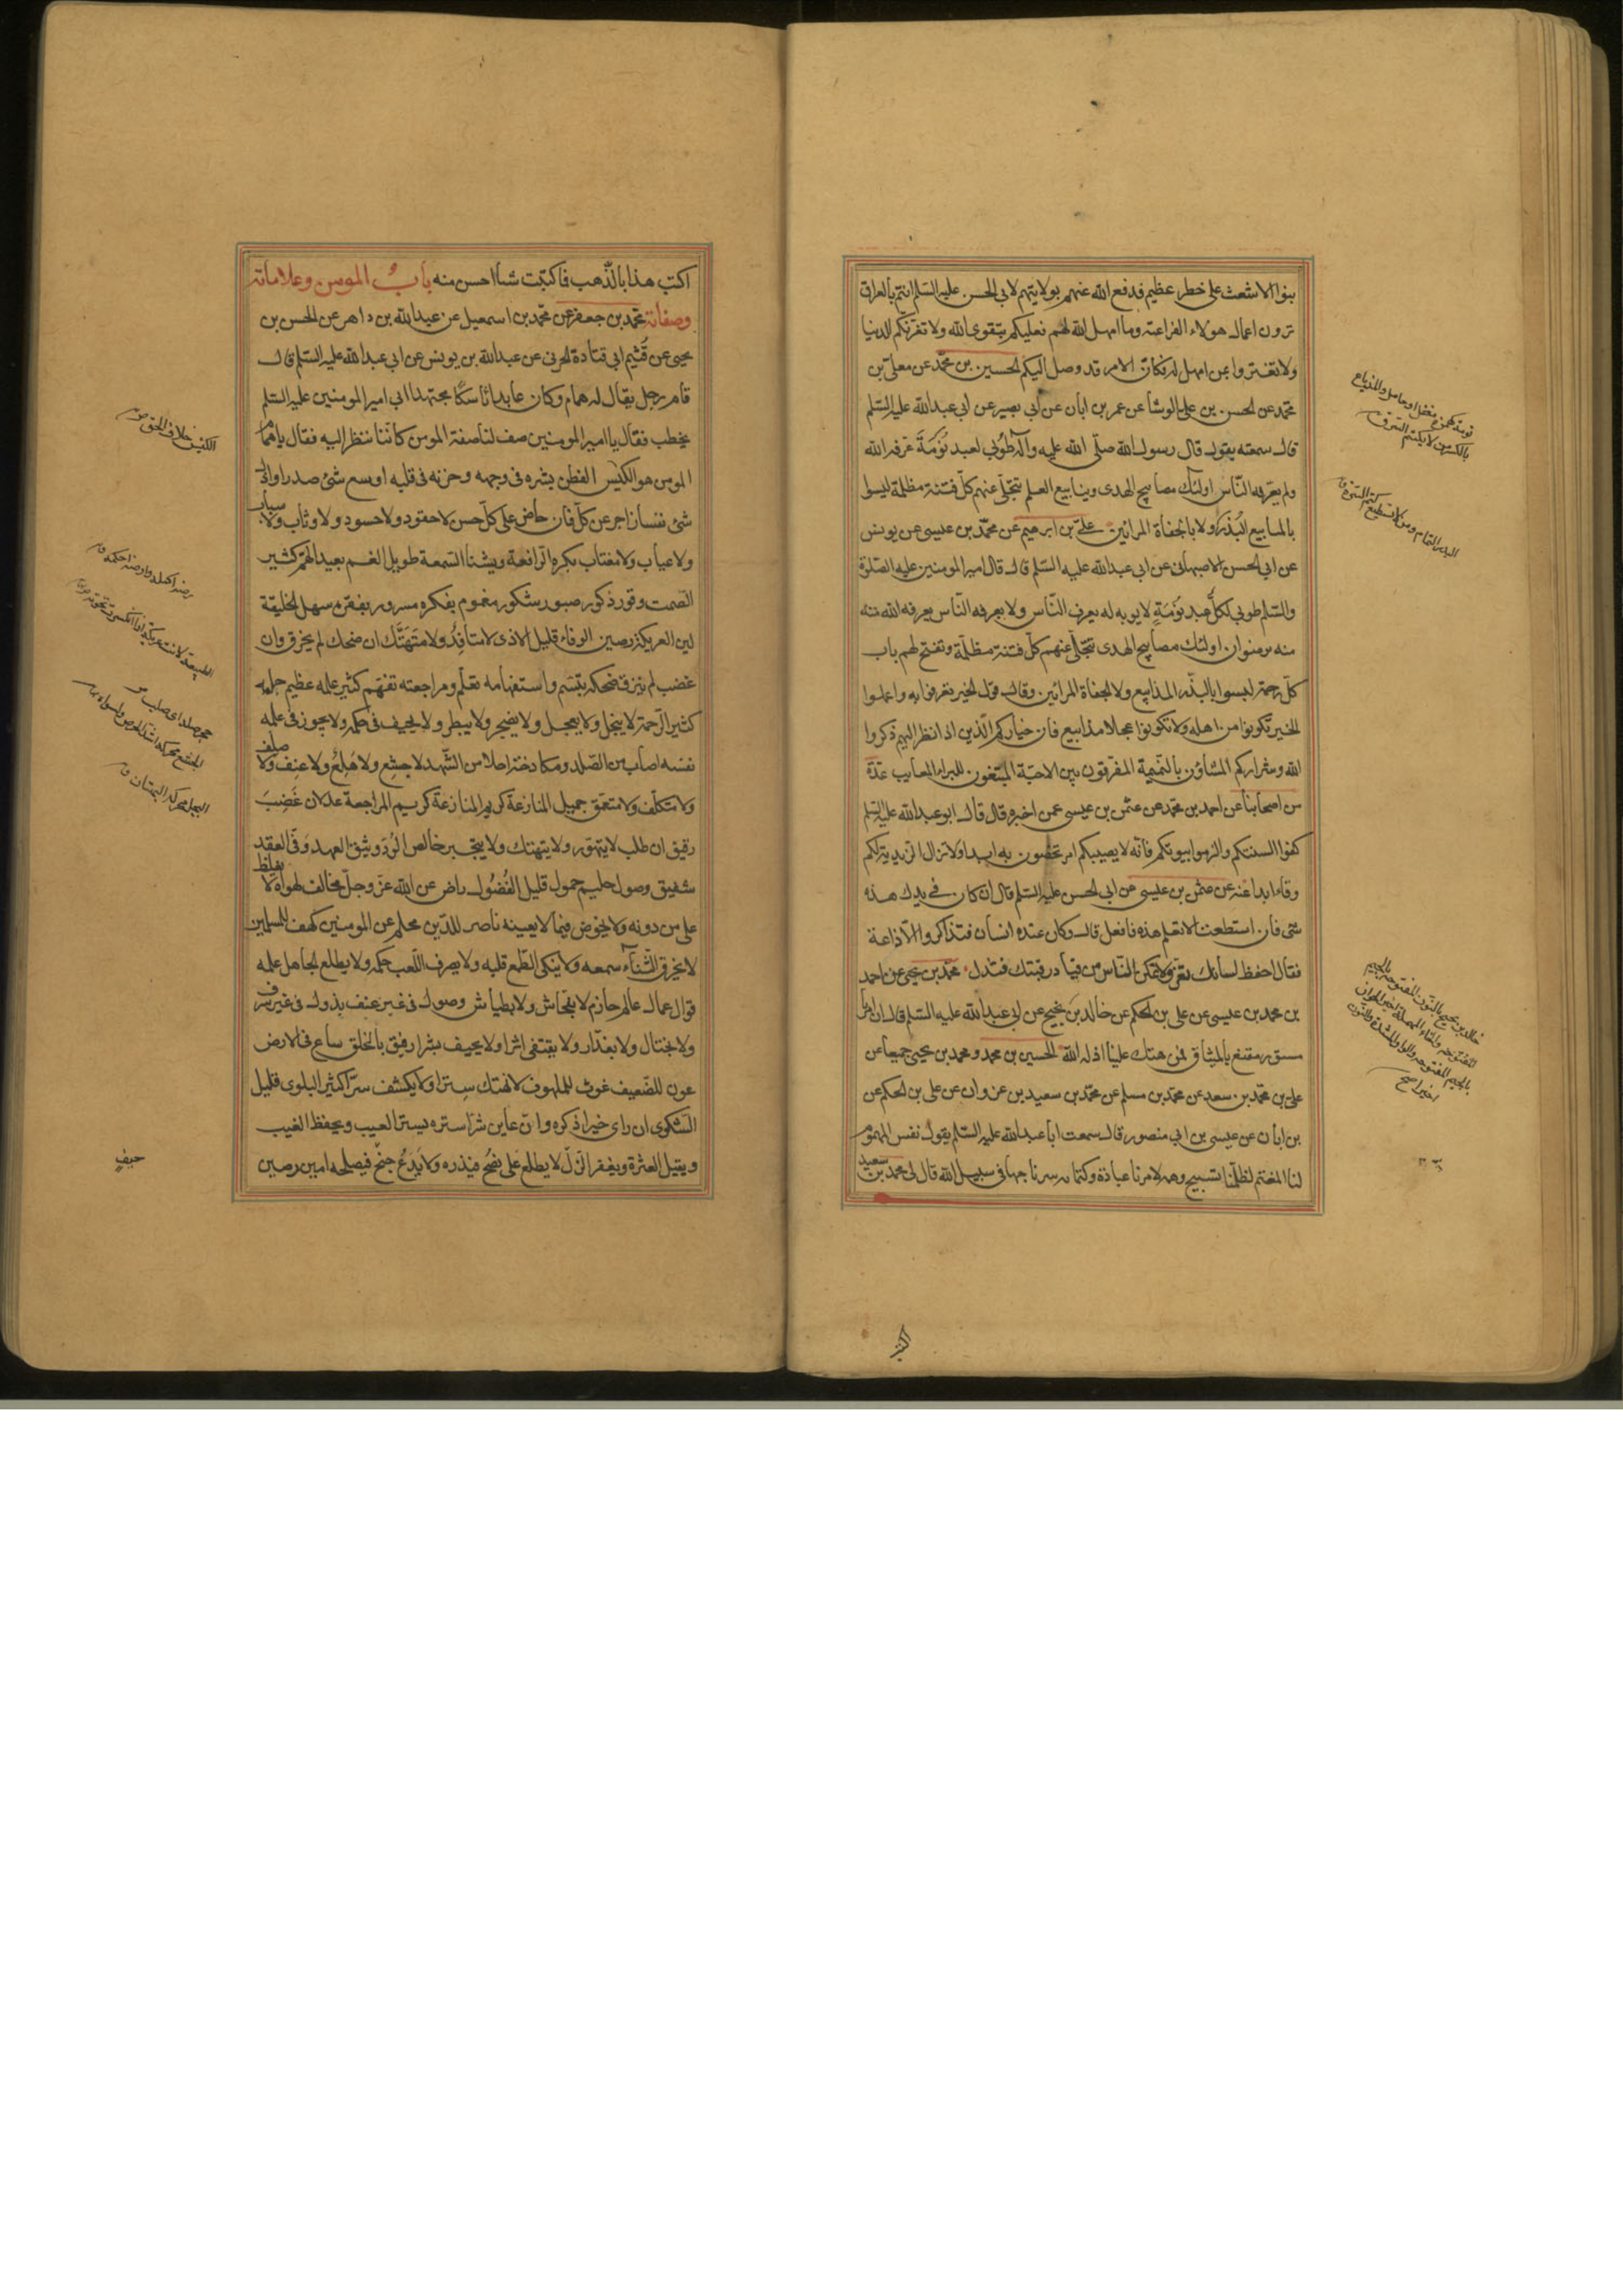 بنوا الاشعث على خطر عظيم فدفع الله عنهم بولايتهم لابى الحسن عليه السلم انتم بالعراق
ترون اعمال هولاء الفراعنة وما امهل الله لهم فعليكم بتقوى الله ولا تغرنكم الدنيا
ولا تغتروا بمن امهل له فكان الامر قد وصل اليكم الحسين بن محمد عن معلى بن
محمد عن الحسن بن على الوشا عن عمر بن ابان عن ابى بصير عن ابى عبد الله عليه السلم
قال سمعته يقول قال رسول الله صلى الله عليه وآله طوبى لعبد نُوَمَةٍ عرفه الله
ولم يعرفه الناس اولئك مصابيح الهدى وينابيع العلم تتجلى عنهم كل فتنة مظلمة ليسوا
بالمذاييع البُذر ولا بالجفاة المرائين على بن ابرهيم عن محمد بن عيسى عن يونس
عن ابى الحسن الاصبهانى عن ابى عبد الله عليه السلم قال قال امير المومنين عليه الصلوة
والسلم طوبى لكل عبد نُوَمَةٍ لا يوبه له يعرف الناس ولا يعرفه الناس يعرفه الله منه
منه برضوان اولئك مصابيح الهدى تتجلى عنهم كل فتنة مظلمة وتفتح لهم باب
كل رحمة ليسوا بالبذر المذاييع ولا الجفاة المرائين وقال قولوا الخير تعرفوا به واعملوا
الخير تكونوا من اهله ولا تكونوا عجلا مذاييع فان خياركم الذين اذا نظر اليهم ذكروا
الله وشراركم المشاؤن بالنميمة المفرقون بين الاحبة المبتغون للبراء المعايب عدة
من اصحابنا عن احمد بن محمد عن عثمن بن عيسى عمن اخبره قال قال ابو عبد الله عليه السلم
كفوا السنتكم والزموا بيوتكم فانه لا يصيبكم امر تخصون به ابدا ولا تزال الزيدية لكم
وقاء ابدا عنه عن عثمن بن عيسى عن ابى الحسن عليه السلم قال ان كان فى يدك هذه
شى فان استطعت الا تعلم هذه فافعل قال وكان عنده انسان فتذاكروا الاذاعة
فقال احفظ لسانك تعز ولا تمكن الناس من قياد رقبتك فتذل محمد بن يحيى عن احمد
بن محمد بن عيسى عن على بن الحكم عن خالد بن نجيح عن ابى عبد الله عليه السلم قال ان امرنا
مستور مقنع بالميثاق فمن هتك علينا اذله الله الحسين بن محمد ومحمد بن يحيى جميعا عن
على بن محمد بن سعد عن محمد بن مسلم عن محمد بن سعيد بن غزوان عن على بن الحكم عن
بن ابان عن عيسى بن ابى منصور قال سمعت ابا عبد الله عليه السلم يقول نفس المهموم
لنا المغتم لظلمنا تسبيح وهمه لامرنا عبادة وكتمانه سرنا جهاد فى سبيل الله قال لى محمد بن سعيد
اكتب
اكتب هذا بالذهب فما كتبت شيأ احسن منه باب المومن وعلاماته
وصفاته محمد بن جعفر عن محمد بن اسمعيل عن عبد الله بن داهر عن الحسن بن
يحيى عن قُثَيم ابى قتادة الحرنى عن عبد الله بن يونس عن ابى عبد الله عليه السلم قال
قام رجل يقال له همام وكان عابدا ناسكًا مجتهدا الى امير المومنين عليه السلم
يخطب فقال يا امير المومنين صف لنا صفة المومن كاننا ننظر اليه فقال يا همام
المومن هو الكيّس الفطن بشره فى وجهه وحزنه فى قلبه اوسع شئ صدرا واذل
شئ نفسا زاجر عن كل فان حاض على كل حسن لا حقود ولا حسود ولا وثاب ولا سباب
ولا عياب ولا مغتاب يكره الرافعة ويشنا السمعة طويل الغم بعيد الهم كثير
الصمت وقور ذكور صبور شكور مغموم بفكره مسرور بفقره سهل الخليقة
لين العريكة رصين الوفاء قليل الاذى لا متافك ولا متهتك ان ضحك لم يخرق وان
غضب لم ينزق ضحكه تبسم واستفهامه تعلم ومراجعته تفهم كثير علمه عظيم حلمه
كثير الرحمة لا يبخل ولا يعجل ولا يضجر ولا يبطر ولا يحيف فى حكمه ولا يجوز فى علمه
نفسه اصلب من الصلد ومكادحته احلا من الشهد لا جشع ولا هلع ولا عنف ولا صلف
ولا متكلف ولا متعمق جميل المنازعة كريم المراجعة عدل ان غضب
رفيق ان طلب لا يتهور ولا يتهتك ولا يتجبر خالص الود وثيق العهد وفى العقد
شفيق وصول حليم حمول قليل الفضول راض عن الله عز وجل مخالف لهواه لا يغلظ
على من دونه ولا يخوض فيما لا يعينه ناصر للدين محام عن المومنين كهف للمسلمين
لا يخرق الثناء سمعه ولا ينكى الطمع قلبه ولا يصرف اللعب حكمه ولا يطلع الجاهل علمه
قوال عمال عالم حازم لا بفحاش ولا بطياش وصول فى غير عنف بذول فى غير سرف
ولا بختال ولا بغدار ولا يقتفى اثرا ولا يحيف بشرا رفيق بالخلق ساع فى الارض
عون للضعيف غوث للملهوف لا يهتك سترا ولا يكشف سرا كثير البلوى قليل
الشكوى ان راى خيرا ذكره وان عاين شرا ستره يستر العيب ويحفظ الغيب
ويقيل العثرة ويغفر الزلة لا يطلع على نصح فيذره ولا يدع جنح فيصلحه امين رصين
الكيس خلاف الحمق ص